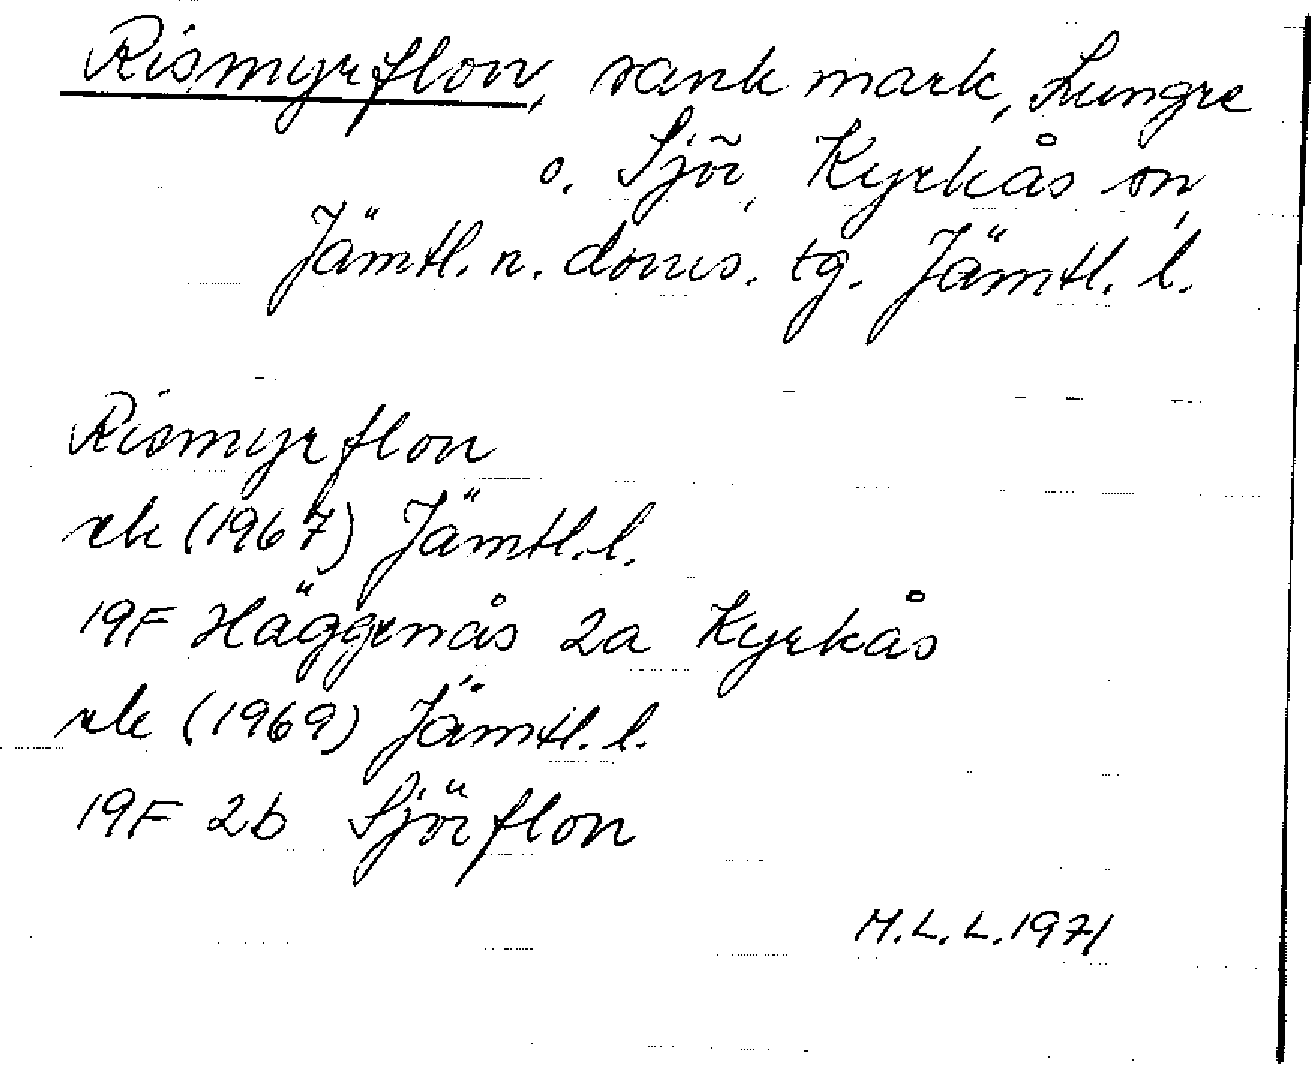 Rismyrflon, sank mark, Lungre
o. Sjör, Kyrkås sn,
Jämtl. n. doms. tg. Jämtl. l.
Rismyrflon
rek (1967) Jämtl. l.
19F Häggenås 2a Kyrkås
rek (1969) Jämtl. l.
19F 2b Sjörflon
M.L.L. 1971